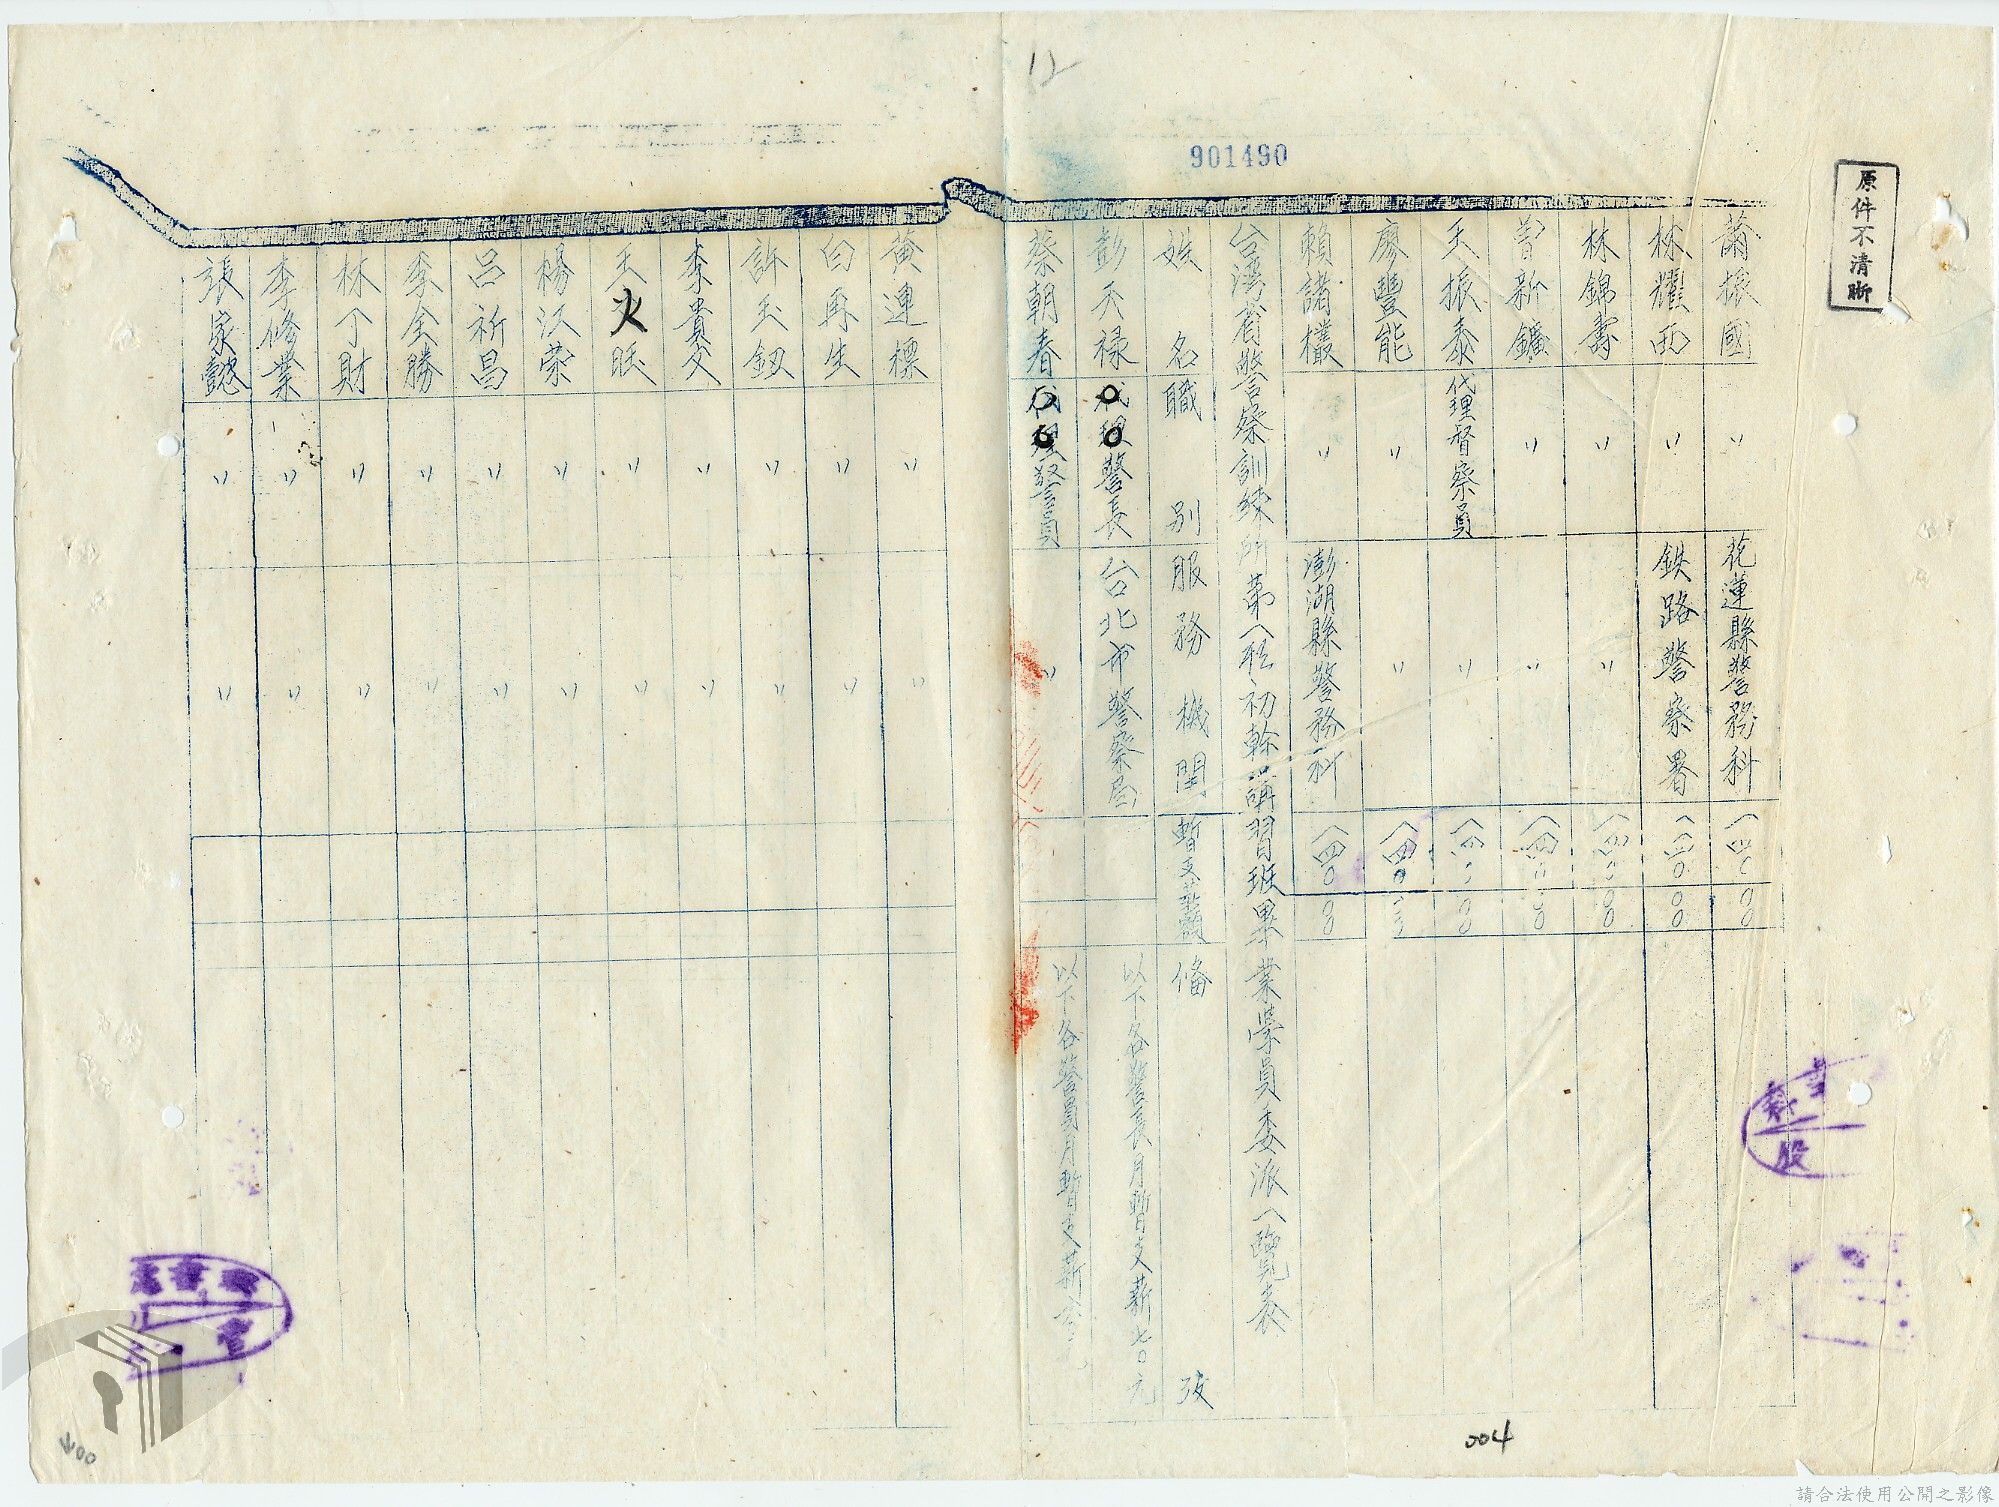 12
901490
原件不清晰
蕭振國 〃 花蓮縣警務科 一四〇 〇〇
林耀西 〃 鉄路警察署 〇 〇〇
林錦壽 〃 〃 〇〇
曾新鑛 〃 〃 一四〇 〇〇
王振泰 代理督察員 〃 〇〇
廖豐能 〃 〃 一四〇
賴諸欉 〃 澎湖縣警務科 一四〇 〇〇
台湾省警察訓練所第一期初幹講習班畢業學員委派一覽表
姓名 職別 服務機関 暫支薪額 俻攷
彭天禄 代理警長 台北市警察局 以下各警長月暫支薪七〇元
蔡朝春 代理警員 〃 以下各警員月暫支薪
黄連標 〃 〃
白再生 〃 〃
許玉釼 〃 〃
李貴父 〃 〃
王火旺 〃 〃
楊江荣 〃 〃
呂祈昌 〃 〃
李全勝 〃 〃
林丁財 〃 〃
李修業 〃 〃
張家懿 〃 〃
股
004
請合法使用公開之影像